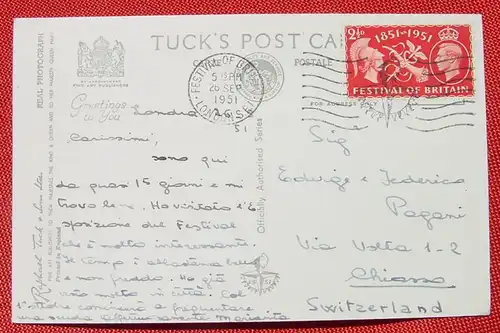 TUCK'S POST CA
REAL PHOTOGRAPH
Greetings
to You
FESTIVAL OF BRITAIN
5 PM
26 SEP
1951
LONDON S.E.
2½D
1851-1951
FESTIVAL OF BRITAIN
POSTALE
FOR ADDRESS
Officially Authorised Series
Raphael Tuck & Sons Ltd.
Printed in England
Londra 26
51
Carissimi,
sono qui
da quasi 15 giorni e mi
trovo bene. Ho visitato l'E
sposizione del Festival
che è molto interessante.
Il tempo è abbastanza
e non freddo. Ho già
molto in città. Col
Ottobre comincerò a frequentare
una scuola
Sig.
Edwige e Federica
Pagani
Via Volta 1-2
Chiasso
Switzerland